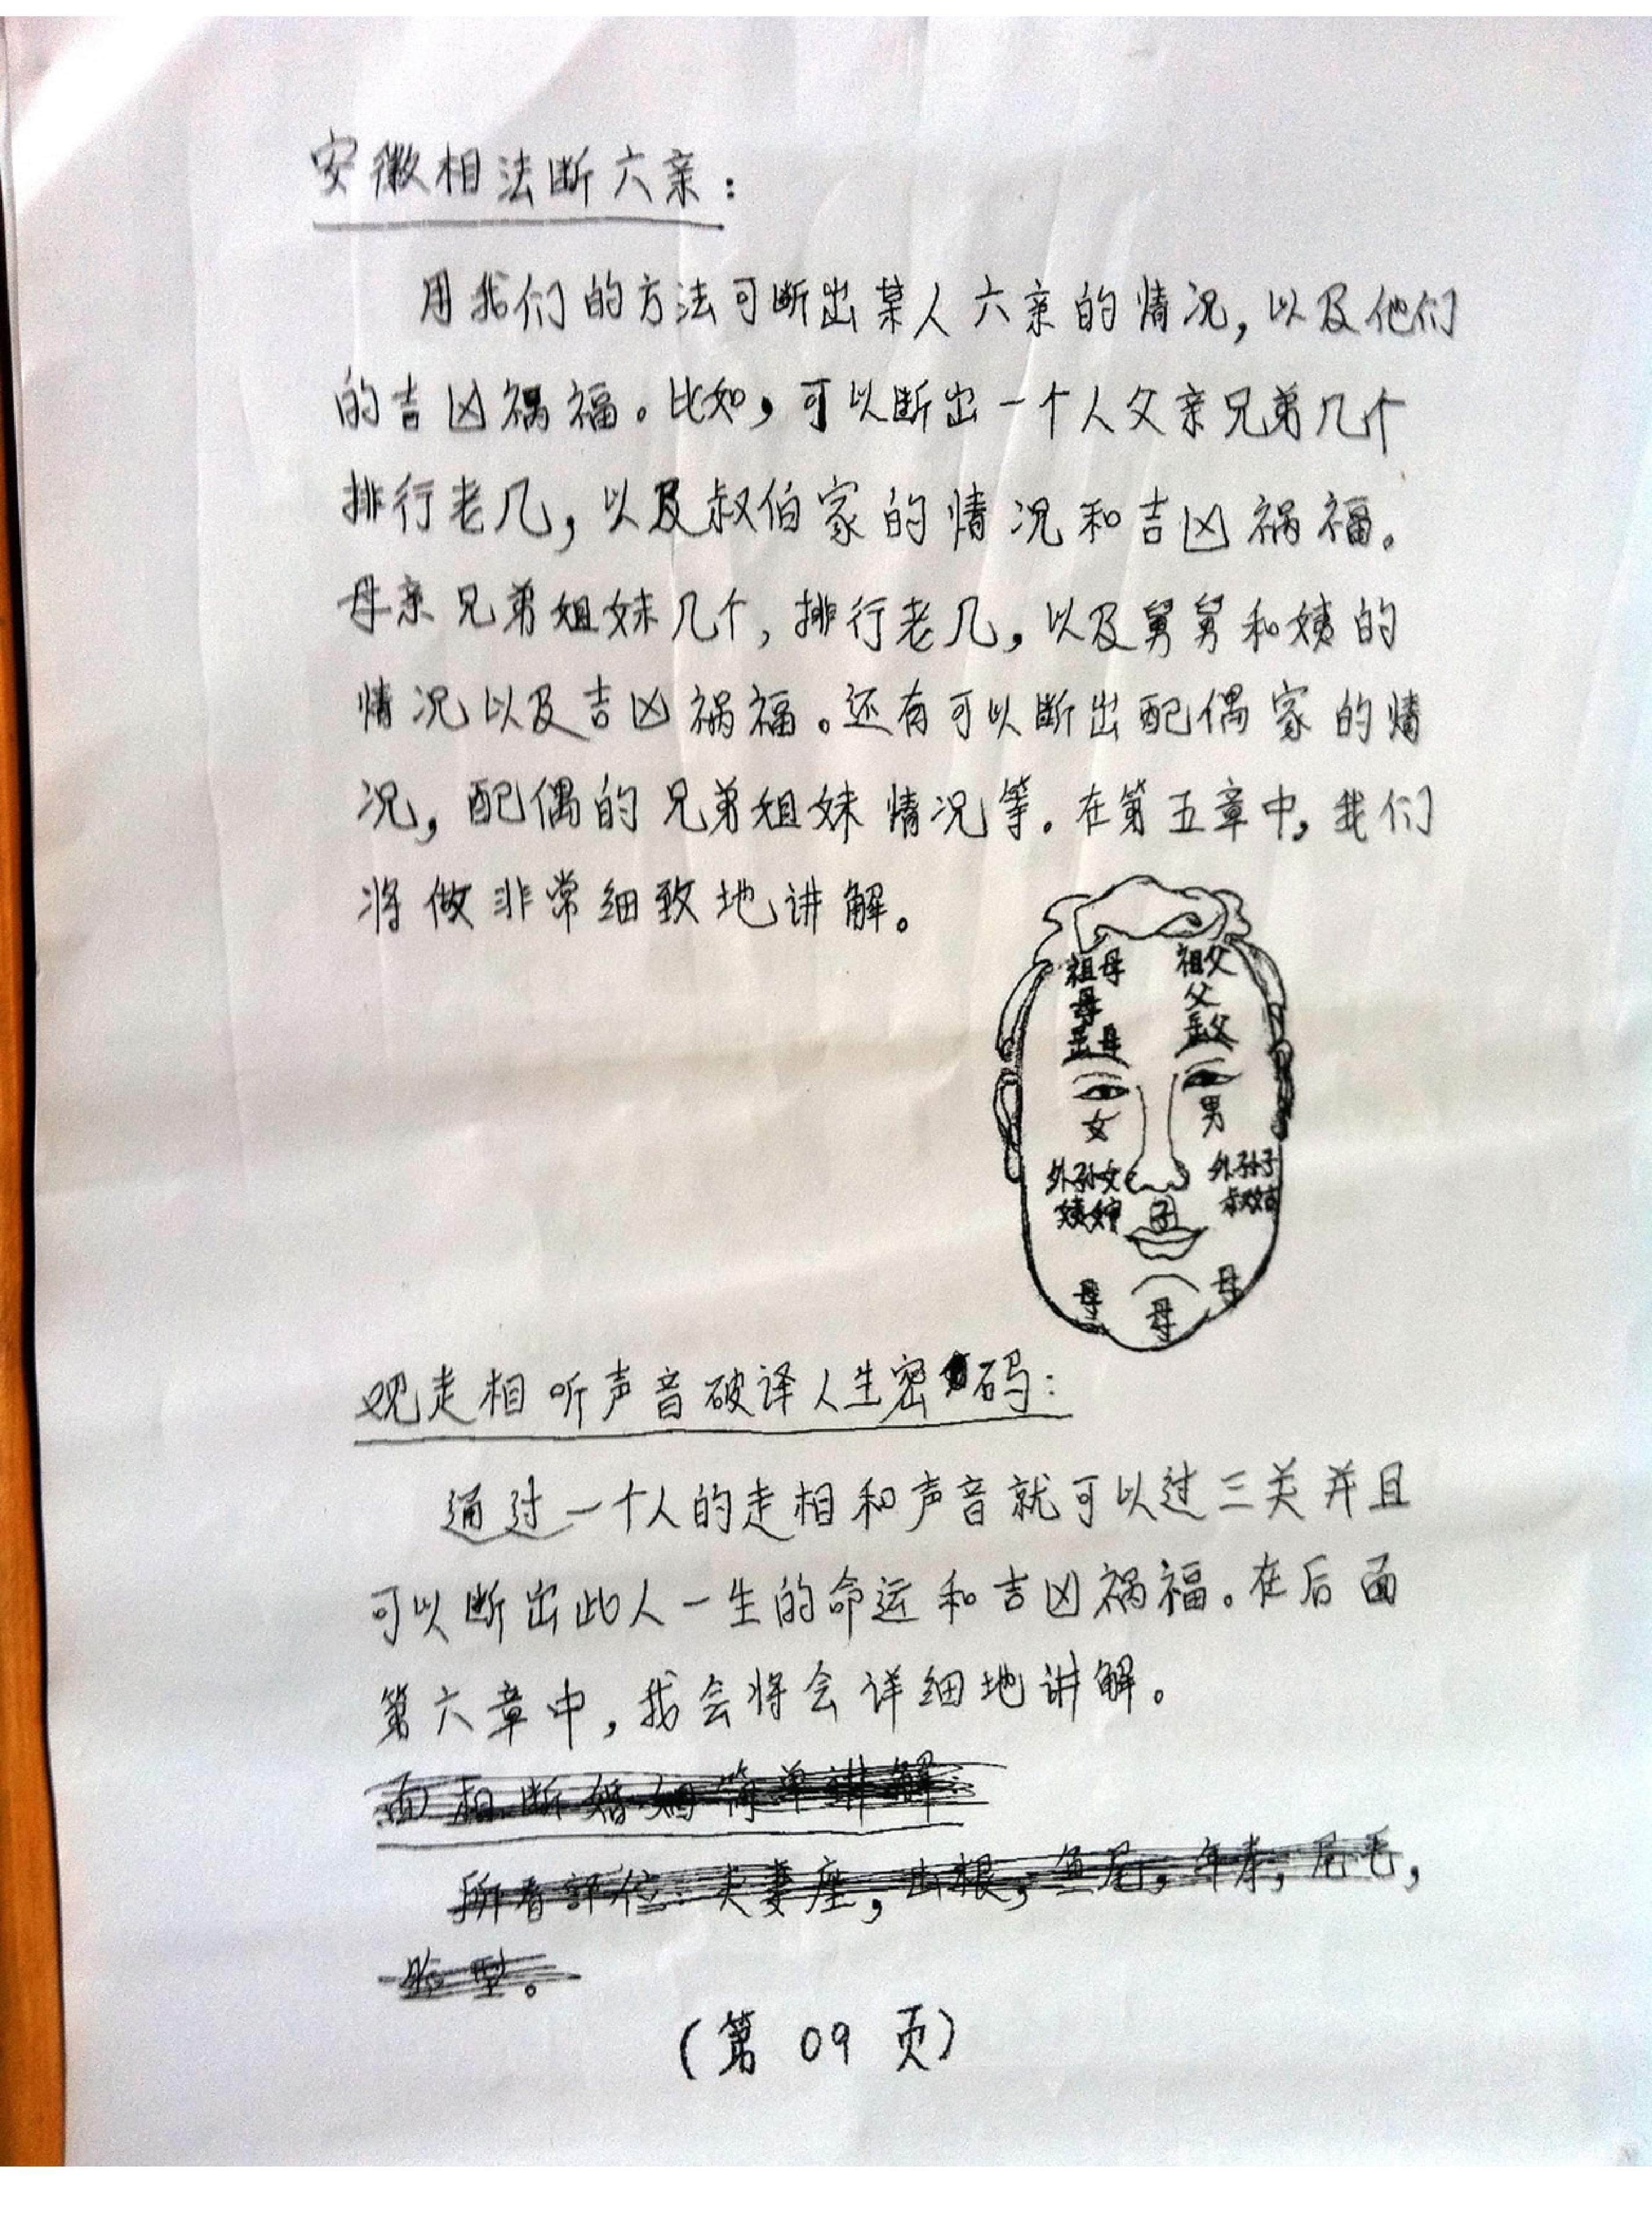 安徽相法断六亲：
用我们的方法可断出某人六亲的情况，以及他们
的吉凶祸福。比如，可以断出一个人父亲兄弟几个
排行老几，以及叔伯家的情况和吉凶祸福。
母亲兄弟姐妹几个，排行老几，以及舅舅和姨的
情况以及吉凶祸福。还有可以断出配偶家的情
况，配偶的兄弟姐妹情况等。在第五章中，我们
将做非常细致地讲解。
祖母 祖父
母 父
岳母 岳父
女 男
外孙女 外孙子
子
母 母 母
观走相听声音破译人生密码：
通过一个人的走相和声音就可以过三关并且
可以断出此人一生的命运和吉凶祸福。在后面
第六章中，我会将会详细地讲解。
面相断婚姻简单讲解：
所看部位：夫妻座，山根，鱼尾，年寿，眉毛，
脸型。
（第 09 页）